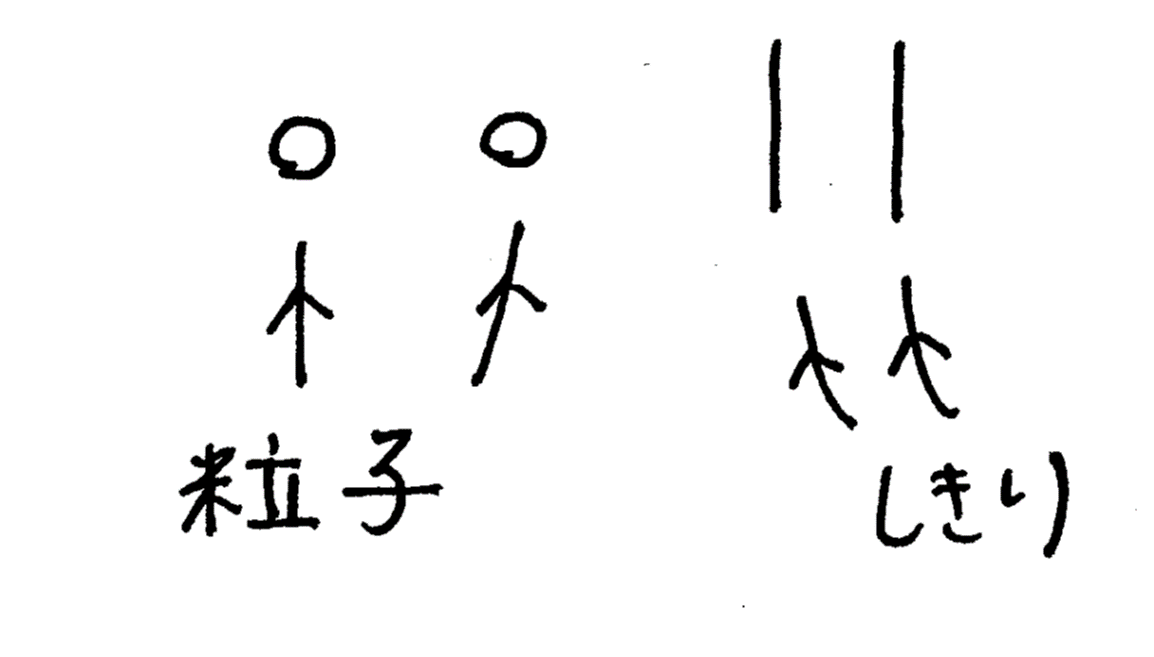 粒子
しきり